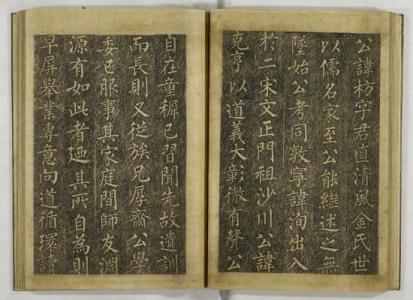 公諱枋字君直清風金氏世
以儒名家至公能繼述之無
墜始公考同敦寧諱洵出入
於二宋文正門祖沙川公諱
克亨以道義大彰徹有聲公
自在童穉已習聞先故遺訓
而長則又從族兄厚齋公學
委已服事其家庭間師友淵
源有如此者廼其所自為則
早屏舉業專意向道循環讀